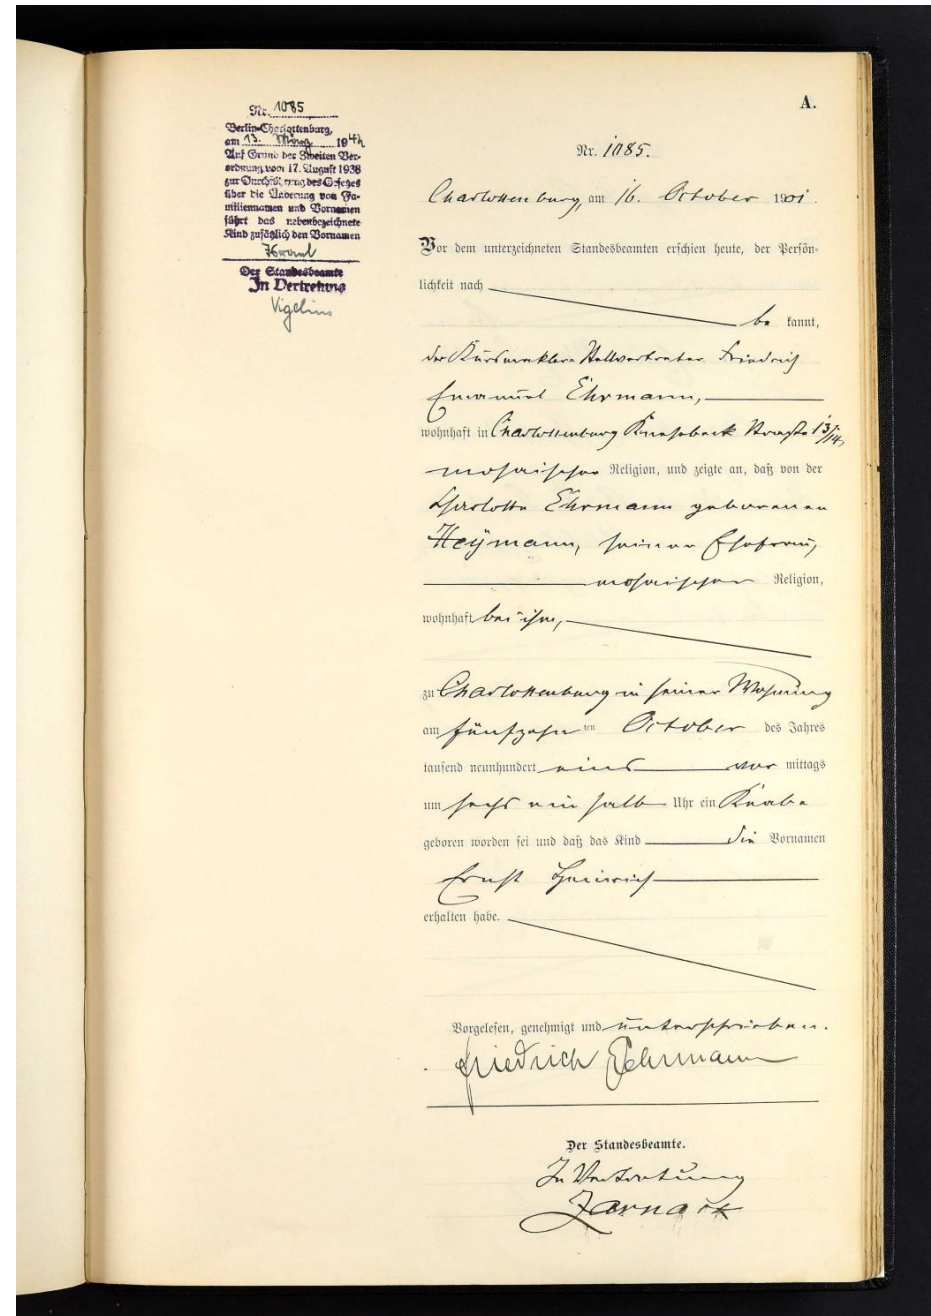 Nr. 1085
Berlin-Charlottenburg,
am 13. März 1942
Auf Grund der Zweiten Ver-
ordnung vom 17. August 1938
zur Durchführung des Gesetzes
über die Änderung von Fa-
miliennamen und Vornamen
führt das nebenbezeichnete
Kind zusätzlich den Vornamen
Israel
Der Standesbeamte
In Vertretung
A.
Nr. 1085.
Charlottenburg, am 16. October 1901.
Vor dem unterzeichneten Standesbeamten erschien heute, der Persön-
lichkeit nach
be kannt,
der Kursmakler Stellvertreter Friedrich
Emanuel Ehrmann,
wohnhaft in Charlottenburg Knesebeck Straße 13/14,
mosaischer Religion, und zeigte an, daß von der
Charlotte Ehrmann geborenen
Heymann, seiner Ehefrau,
mosaischer Religion,
wohnhaft bei ihm,
zu Charlottenburg in seiner Wohnung
am fünfzehn ten October des Jahres
tausend neunhundert eins vor mittags
um sechs ein halb Uhr ein Knabe
geboren worden sei und daß das Kind die Vornamen
Ernst Heinrich
erhalten habe.
Vorgelesen, genehmigt und unterschrieben.
Friedrich Ehrmann
Der Standesbeamte.
In Vertretung
Zarnack